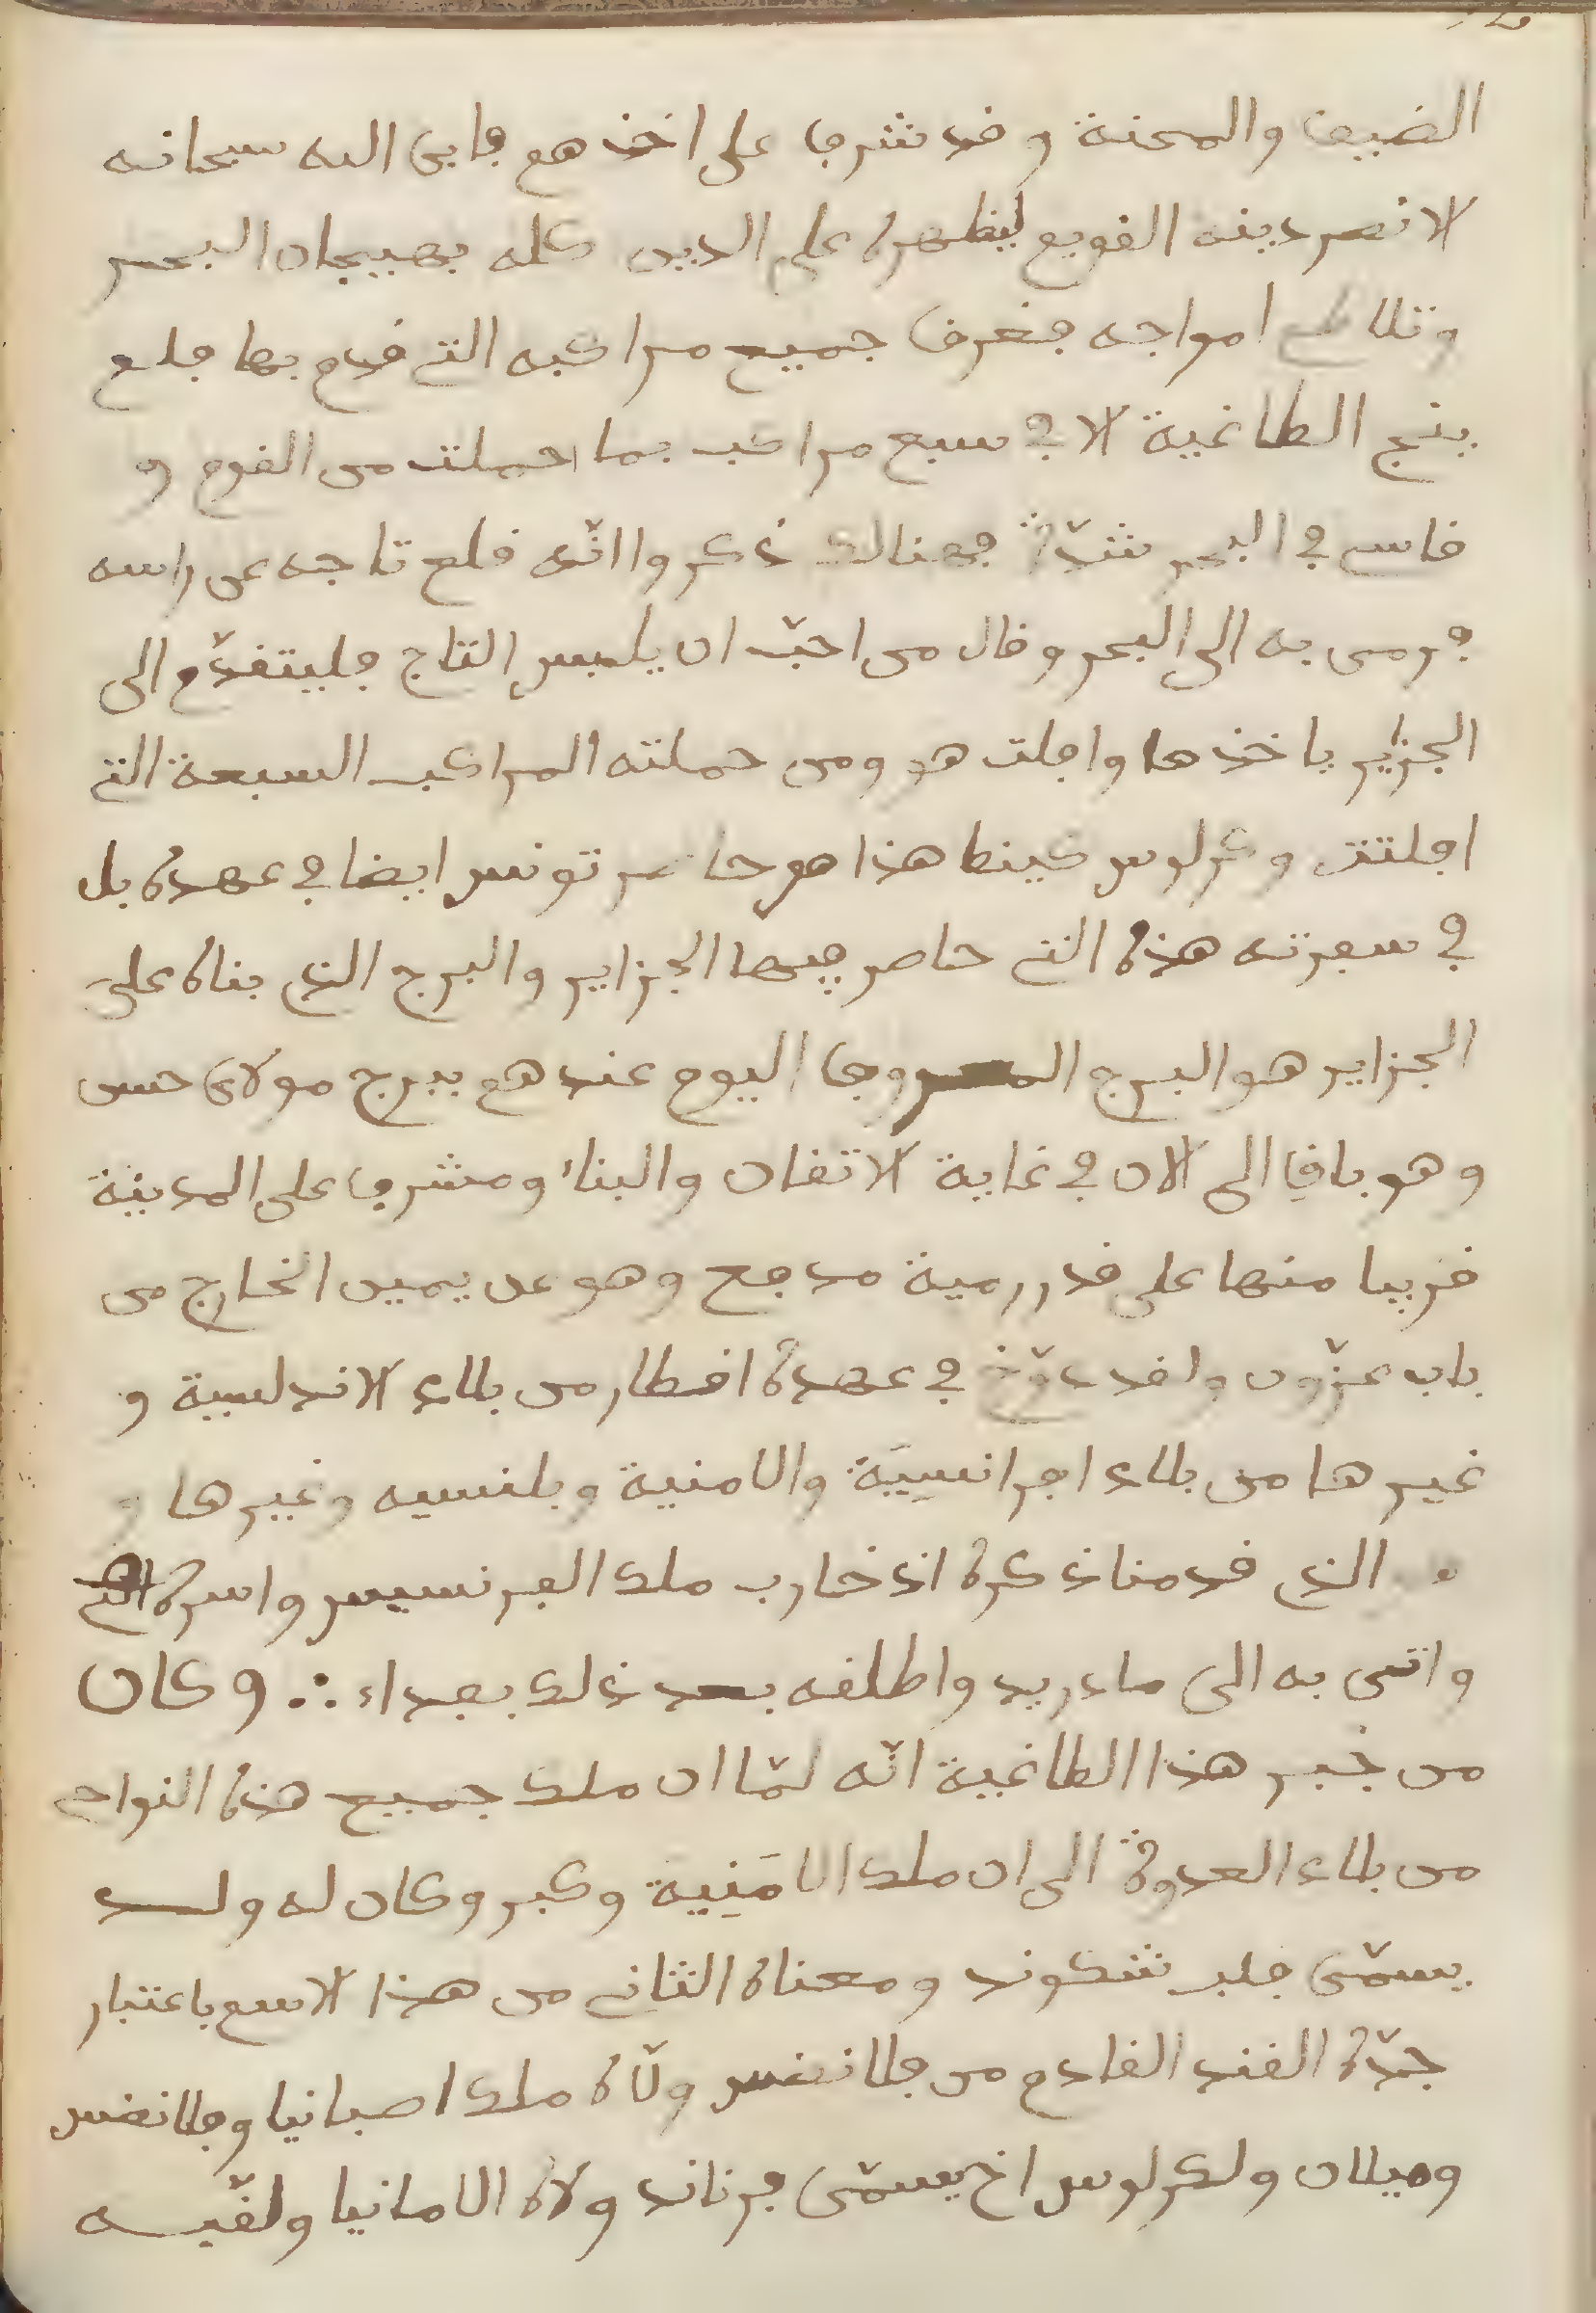 الضيق والمحنة وقد شرف على اخذهم فابى الله سبحانه
الا نصر دينه القويم ليظهره على الدين كله بهيجان البحر
وتلاطم امواجه فغرق جميع مراكبه التي قدم بها فلم
ينج الطاغية الا في سبع مراكب بما حملت من القوم و
قاسى في البحر شدّة فهنالك ذكروا انّه قلع تاجه عن راسه
فرمى به الى البحر وقال من احبّ ان يلبس التاج فليتقدّم الى
الجزاير ياخذها وافلت هو ومن حملته المراكب السبعة التي
افلتت وكرلوس كينط هذا هو حاصر تونس ايضا في عهده بل
في سفرته هذه التي حاصر فيها الجزاير والبرج الذي بناه على
الجزاير هو البرج المعروف اليوم عندهم ببرج مولاى حسن
وهو باق الى الان في غاية الاتقان والبناء ومشرف على المدينة
قريبا منها على قدر رمية مدفع وهو عن يمين الخارج من
باب عزّون ولقد دوّخ في عهده اقطار من بلاد الاندلسية و
غيرها من بلاد افرانسيية والامنية وبلنسيه وغيرها و
الذي قدمنا ذكره اذ حارب ملك الفرنسيس واسره
واتى به الى مادريد واطلقه بعد ذلك بفداء ∴ وكان
من خبر هذا الطاغية انّه لمّا ان ملك جميع هذه النواحي
من بلاد العدوة الى ان ملك الامَنِية وكبر وكان له ولد
يسمّى فلب شكوند ومعناه الثاني من هذا الاسم باعتبار
جدّه الفند القادم من فلانضس ولّاه ملك اصبانيا وفلانضس
وميلان ولكرلوس اخ يسمّى فرناند ولاه الامانيا ولقّبه